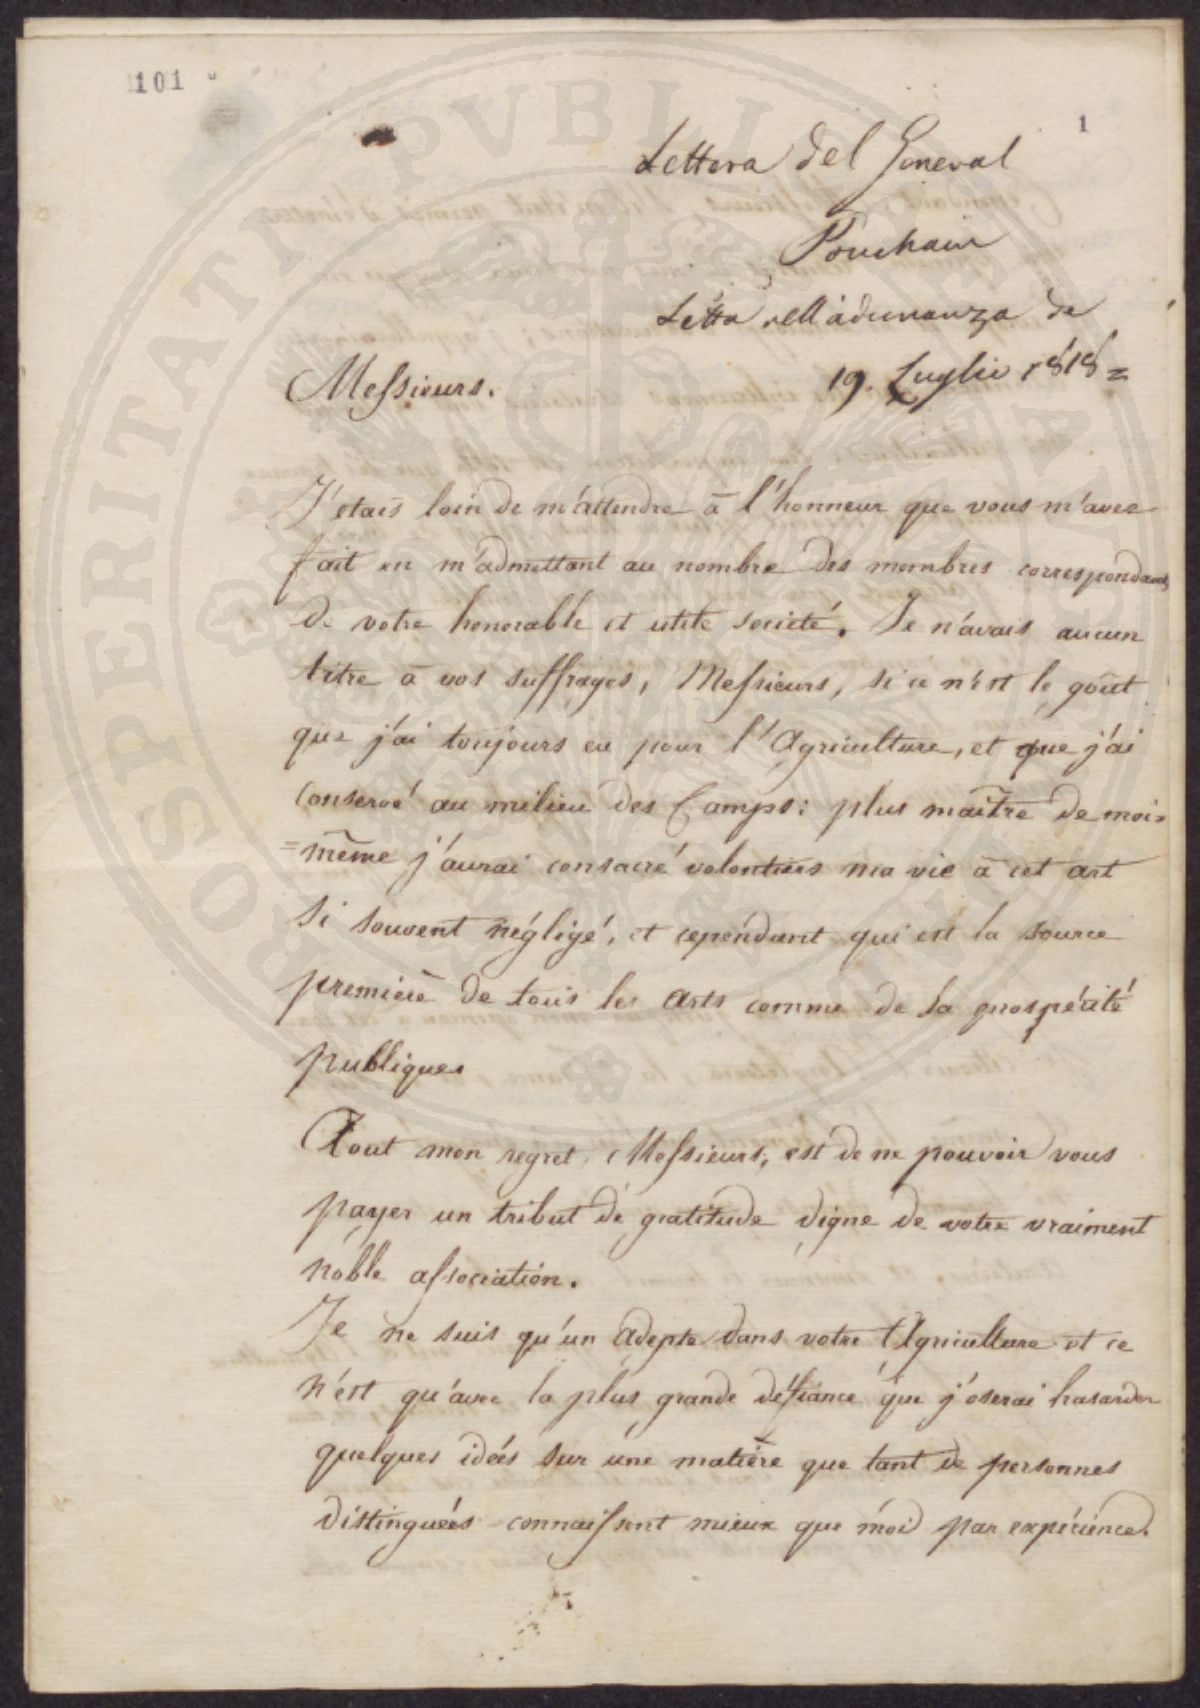 101
1
Lettera del General
Pouchain
Letta nell'adunanza de
19. Luglio 1818=
Messieurs.
J'etais loin de m'attendre à l'honneur que vous m'avez
fait en m'admettant au nombre des membres correspondans
de votre honorable et utile société. Je n'avais aucun
titre à vos suffrages, Messieurs, si ce n'est le goût
que j'ai toujours eu pour l'Agriculture, et que j'ai
conservé au milieu des Camps: plus maître de moi=
=même j'aurai consacré volontiers ma vie à cet art
si souvent négligé, et cependant qui est la source
première de tous les arts comme de la prospérité
publique.
Tout mon regret, Messieurs, est de ne pouvoir vous
payer un tribut de gratitude digne de votre vraiment
noble association.
Je ne suis qu'un adepte dans votre Agriculture et ce
n'est qu'avec la plus grande défiance que j'oserai hasarder
quelques idées sur une matière que tant de personnes
distinguées connaissent mieux que moi par expérience.
PROSPERITATI PVBLICAE AVGENDAE